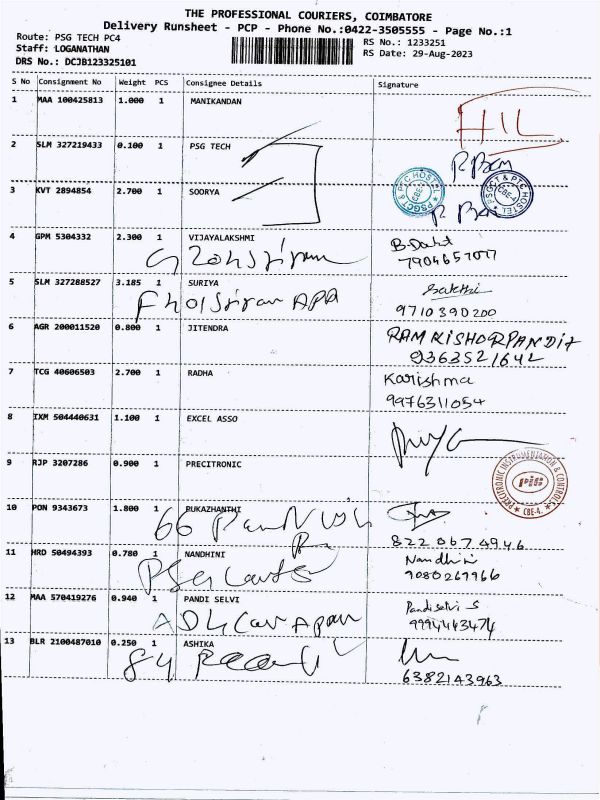 THE PROFESSIONAL COURIERS, COIMBATORE
Delivery Runsheet - PCP - Phone No.:0422-3505555 - Page No.:1
Route: PSG TECH PC4
Staff: LOGANATHAN
DRS No.: DCJB123325101
RS No.: 1233251
RS Date: 29-Aug-2023
S No Consignment No Weight PCS Consignee Details Signature
1 MAA 100425813 1.000 1 MANIKANDAN
HIL
2 SLM 327219433 0.100 1 PSG TECH
PSGCT & PTC HOSTEL CBE-4
3 KVT 2894854 2.700 1 SOORYA
4 GPM 5304332 2.300 1 VIJAYALAKSHMI
5 SLM 327288527 3.185 1 SURIYA
Sakthi
9710390200
6 AGR 200011520 0.800 1 JITENDRA
RAM KISHOR PANDIT
9363521642
7 TCG 40606503 2.700 1 RADHA
Karishma
9976311054
8 IXM 504440631 1.100 1 EXCEL ASSO
9 RJP 3207286 0.900 1 PRECITRONIC
PRECITRONIC INSTRUMENTATION & CONTROLS CBE-4.
10 PON 9343673 1.800 1 PUKAZHANTHI
822 067 4946
11 HRD 50494393 0.780 1 NANDHINI
Nandhini
9080267966
12 MAA 570419276 0.940 1 PANDI SELVI
Pandiselvi S
9994443474
13 BLR 2100487010 0.250 1 ASHIKA
84
6382143963